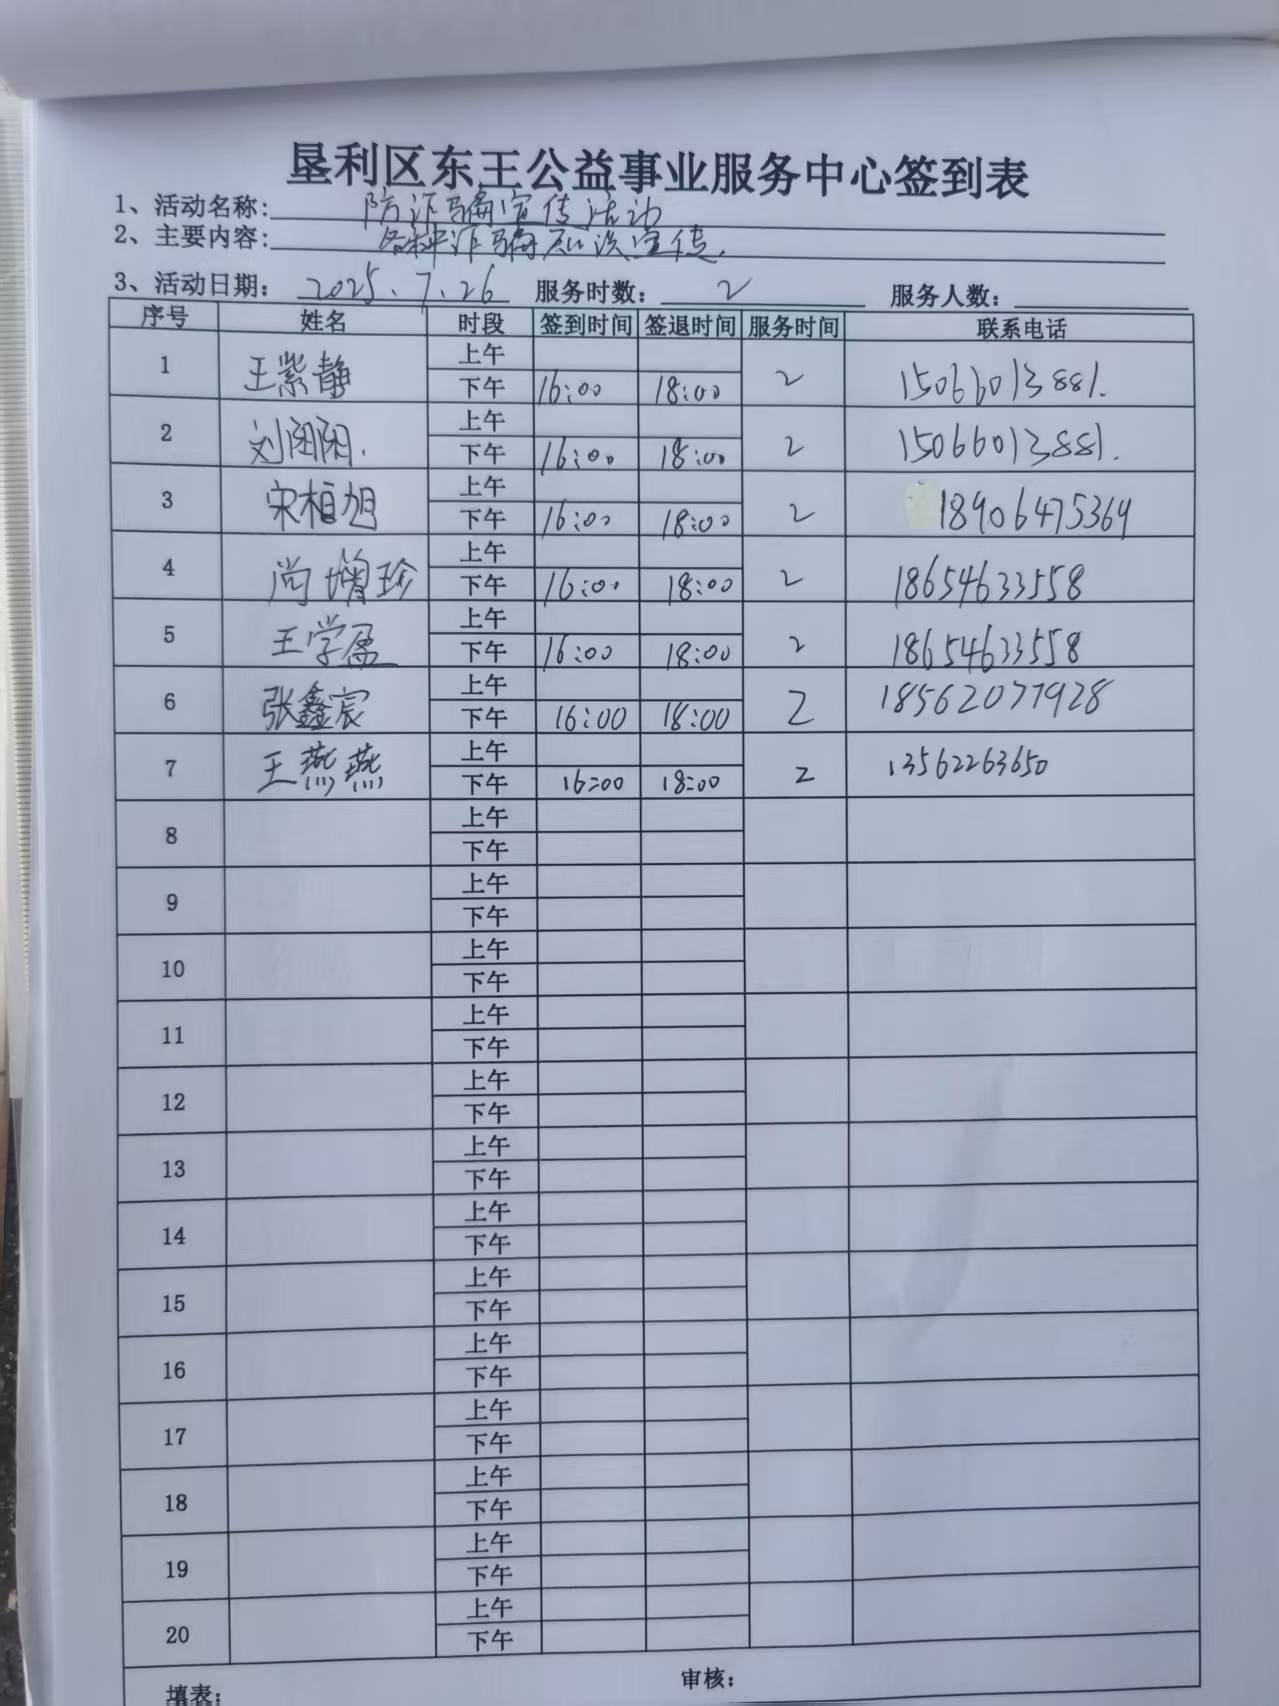 垦利区东王公益事业服务中心签到表
1、活动名称: 防诈骗宣传活动
2、主要内容: 各种诈骗知识宣传.
3、活动日期: 2025.7.26 服务时数: 2 服务人数:
序号 姓名 时段 签到时间 签退时间 服务时间 联系电话
1 王紫静 上午 2 15066013881.
下午 16:00 18:00
2 刘阳阳. 上午 2 15066013881.
下午 16:00 18:00
3 宋桓旭 上午 2 18906475369
下午 16:00 18:00
4 尚增珍 上午 2 18654633558
下午 16:00 18:00
5 王学盈 上午 2 18654633558
下午 16:00 18:00
6 张鑫宸 上午 2 18562077928
下午 16:00 18:00
7 王燕燕 上午 2 13562263650
下午 16:00 18:00
8 上午
下午
9 上午
下午
10 上午
下午
11 上午
下午
12 上午
下午
13 上午
下午
14 上午
下午
15 上午
下午
16 上午
下午
17 上午
下午
18 上午
下午
19 上午
下午
20 上午
下午
填表: 审核: